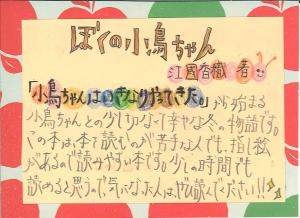 ぼくの小鳥ちゃん
江國香織 著
「小鳥ちゃんはいきなりやってきた。」が始まる
小鳥ちゃんとの少し切なくて幸せな冬の物語です。
この本は、本を読むのが苦手な人でも、指し絵
があるので読みやすい本です。少しの時間でも
読めると思うので気になった人は、ぜひ読んでください!!